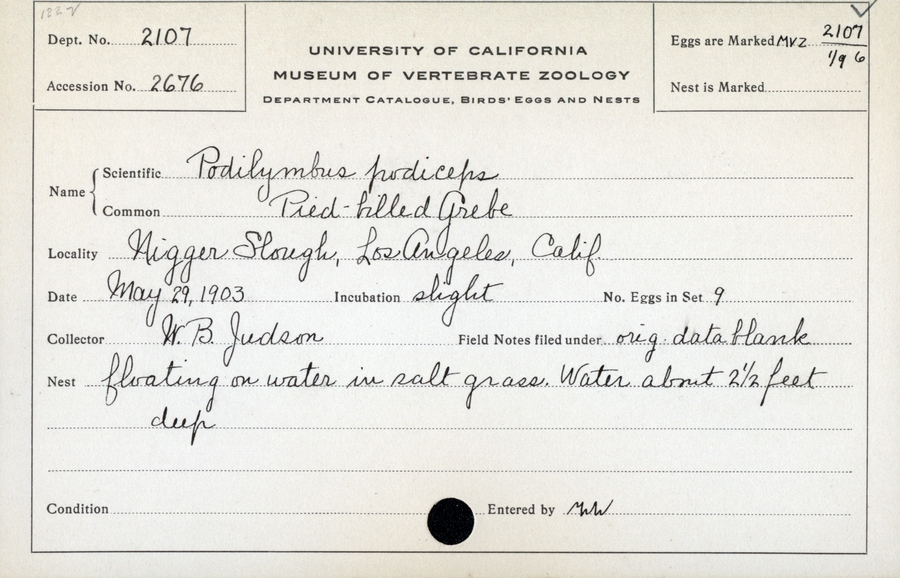 Dept. No. 2107
Accession No. 2676
UNIVERSITY OF CALIFORNIA
MUSEUM OF VERTEBRATE ZOOLOGY
DEPARTMENT CATALOGUE, BIRDS' EGGS AND NESTS
Eggs are Marked MVZ 2107
1/9 6
Nest is Marked
Name
Scientific Podilymbus podiceps
Common Pied-billed Grebe
Locality Nigger Slough, Los Angeles, Calif.
Date May 29, 1903 Incubation slight No. Eggs in Set 9
Collector W. B. Judson Field Notes filed under orig. data blank
Nest floating on water in salt grass. Water about 2 1/2 feet
deep
Condition Entered by